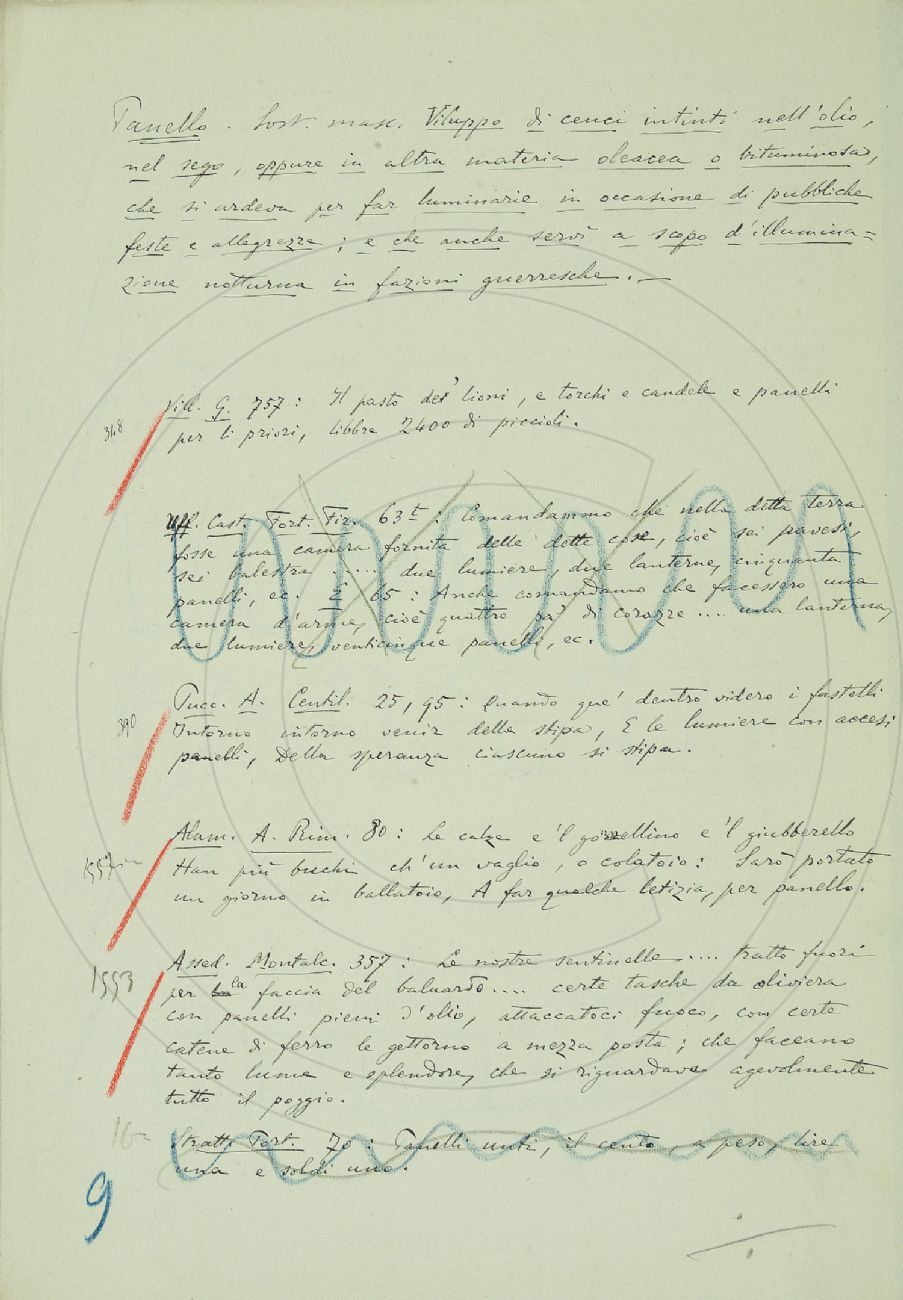 Panello. Sost. masc. Viluppo di cenci intinti nell'olio,
nel sego, oppure in altra materia oleacea o bituminosa,
che si ardeva per far luminarie in occasione di pubbliche
feste e allegrezze; e che anche servì a scopo d'illumina=
zione notturna in fazioni guerresche.—
348
Vill. G. 757: Il pasto de' lioni, e torchi e candele e panelli
per li priori, libbre 2400 di piccioli.
Uff. Cast. Fort. Fir. 63t: Comandammo che nella detta terra
fosse una camera fornita delle dette cose, cioè sei pavesi,
sei balestra ..... due lumiere, due lanterne, cinquanta
panelli, ec. E 65: Anche comandamo che facessero una
camera d'arme, cioè quattro pa' di corazze ... una lanterna,
due lumiere, venticinque panelli, ec.
390
Pucc. A. Centil. 25, 95: Quando que' dentro videro i fastelli
Intorno intorno venir della stipa, E le lumiere con accesi
panelli, Della speranza ciascuno si stipa.
1557
Alam. A. Rim. 80: Le calze e 'l gonnellino e 'l giubberello
Han più buchi ch'un vaglio, o colatoio: Sarò portato
un giorno in ballatoio, A far qualche letizia, per panello.
1553
Assed. Montalc. 357: Le nostre sentinelle .... tratto fuori
per la faccia del baluardo .... certe tasche da oliviera
con panelli pieni d'olio, attaccatoci fuoco, con certe
catene di ferro le gettorno a mezza posta; che faceano
tanto lume e splendore, che si riguardava agevolmente
tutto il poggio.
16
Stratt. Port. 70: Panelli unti, il cento, a peso, lire
una e soldi uno.
9